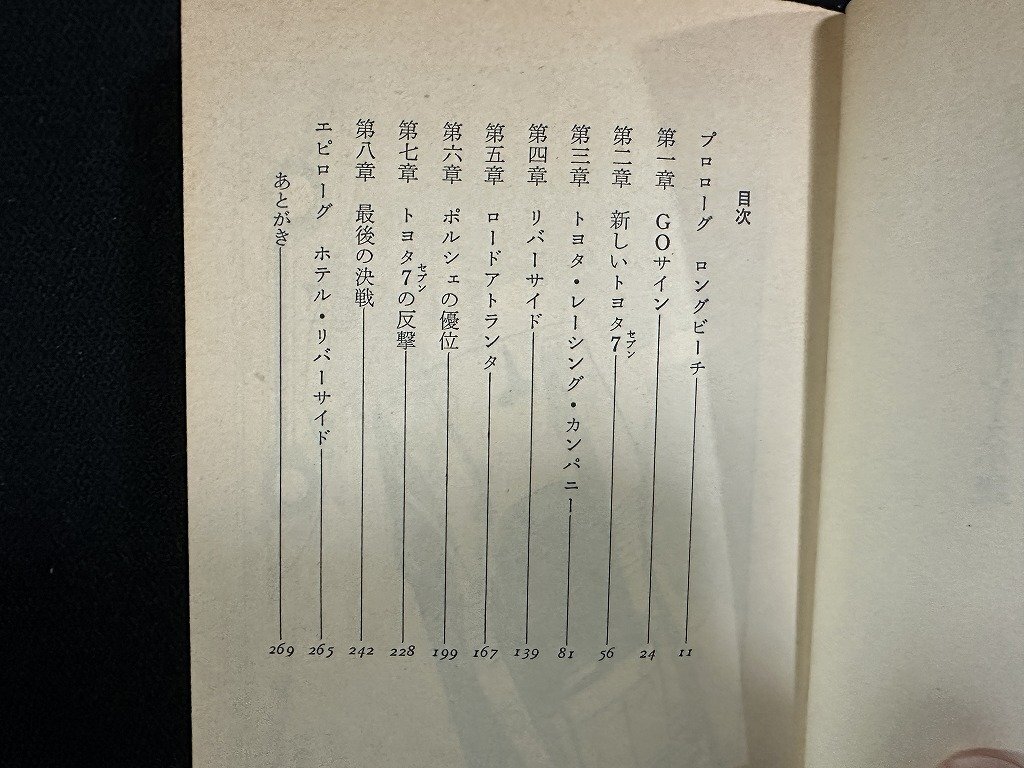 目次
プロローグ ロングビーチ 11
第一章 GOサイン 24
第二章 新しいトヨタ7セブン 56
第三章 トヨタ・レーシング・カンパニー 81
第四章 リバーサイド 139
第五章 ロードアトランタ 167
第六章 ポルシェの優位 199
第七章 トヨタ7セブンの反撃 228
第八章 最後の決戦 242
エピローグ ホテル・リバーサイド 265
あとがき 269